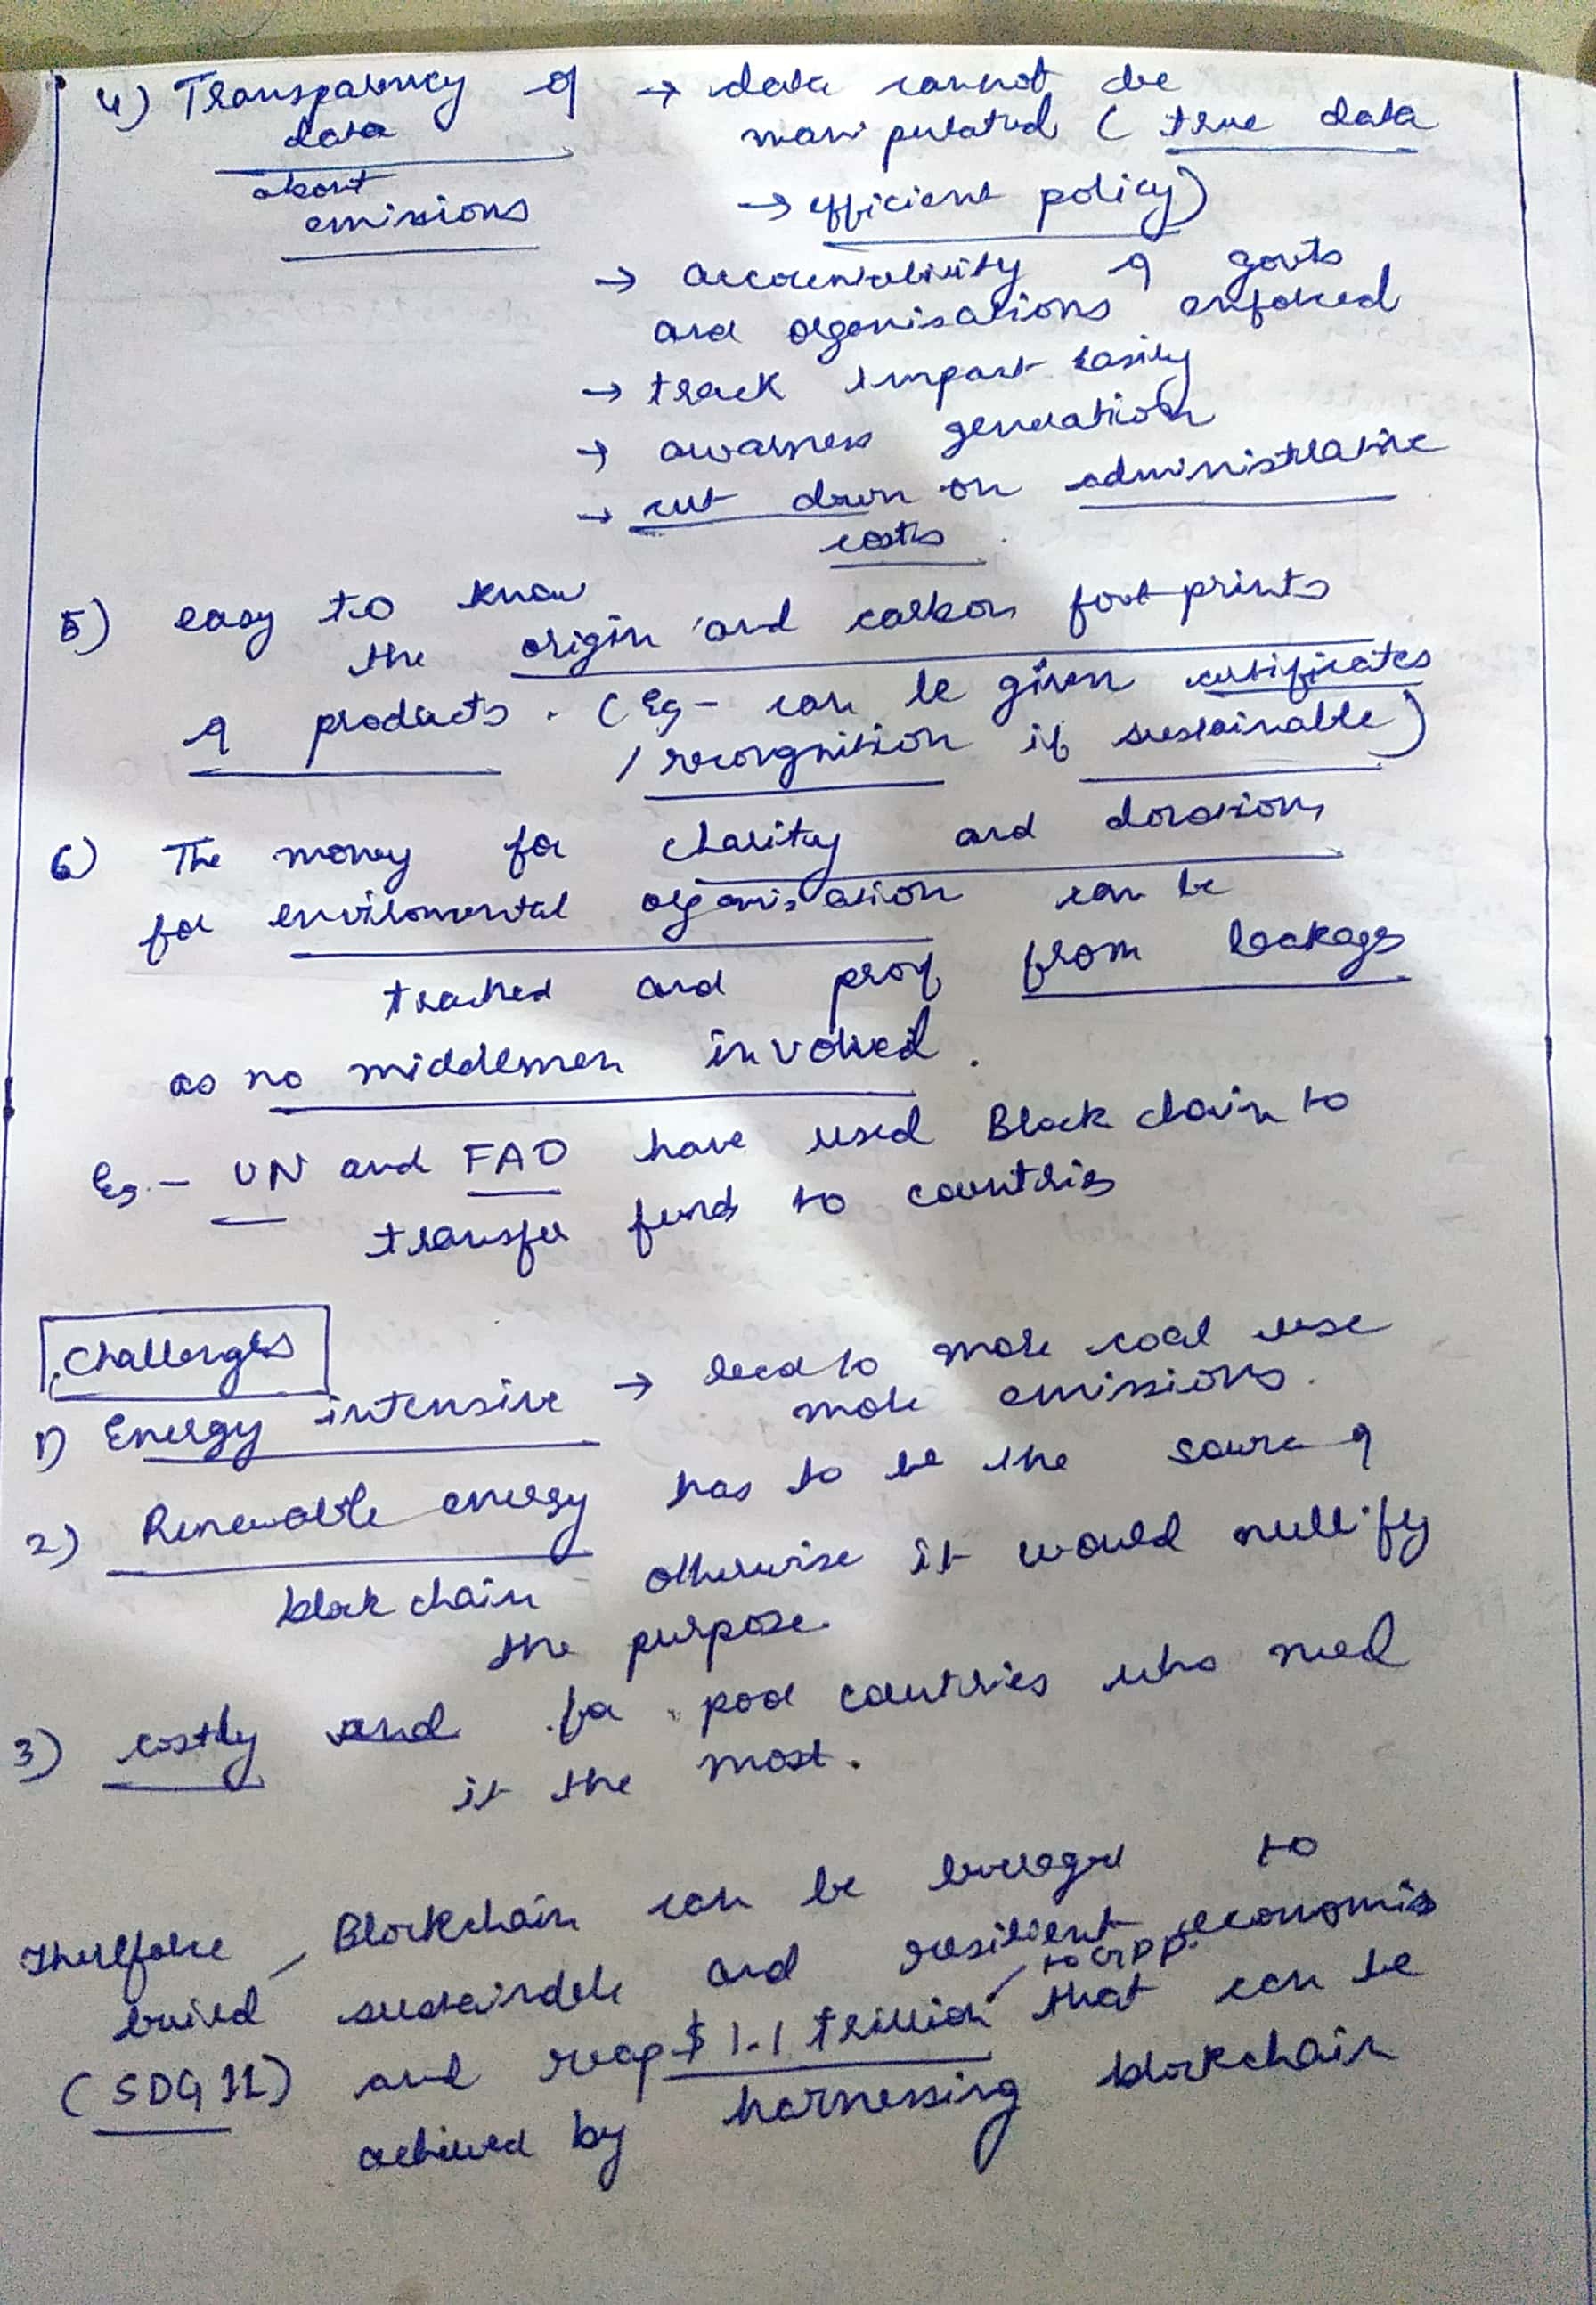 4) Transparency of → data cannot be
data manipulated ( true data
about → efficient policy)
emissions
→ accountability of govts
and organisations enforced
→ track impact easily
→ awarness generation
→ cut down on administrative
costs.
5) easy to know
the origin and carbon footprints
of products. (Eg- can be given certificates
/ recorgnition if sustainable)
6) The money for charity and donations
for envilomental organisation can be
tracked and prof from leakages
as no middlemen involved.
Eg.- UN and FAO have used Block chain to
transfer funds to countries
Challenges
1) Energy intensive → lead to more coal use
more emissions.
2) Renewable energy has to be the source of
block chain otherwise it would nullify
the purpose.
3) costly and for poor countries who need
it the most.
Therefore, Blockchain can be leveraged to
build sustainable and resilient economies
to GDP
(SDG 11) and reap $ 1.1 trillion that can be
achieved by harnessing blockchain